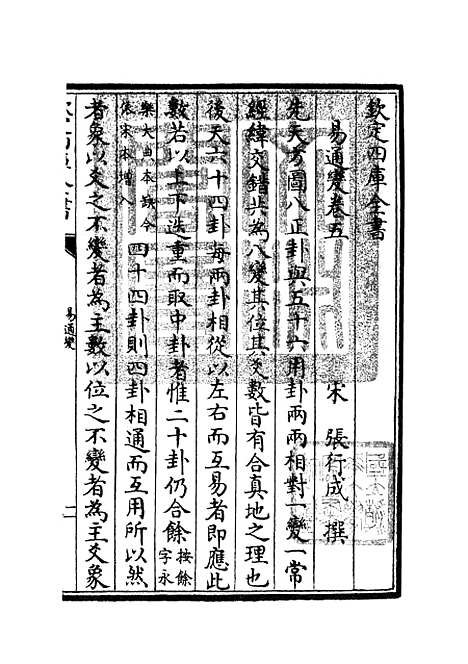 欽定四庫全書
易通變卷五
宋 張行成 撰
先天方圖八正卦與五十六用卦兩兩相對一變一常
經緯交錯共為八變其位其爻數皆有合真地之理也
後天六十四卦每兩卦相從以左右而互易者即應此
數若以上下迭重而取中卦者惟二十卦仍合餘按餘字永
樂大典本缺今依宋本增入四十四卦則四卦相通而互用所以然
者象以爻之不變者為主數以位之不變者為主爻象
易通變
一